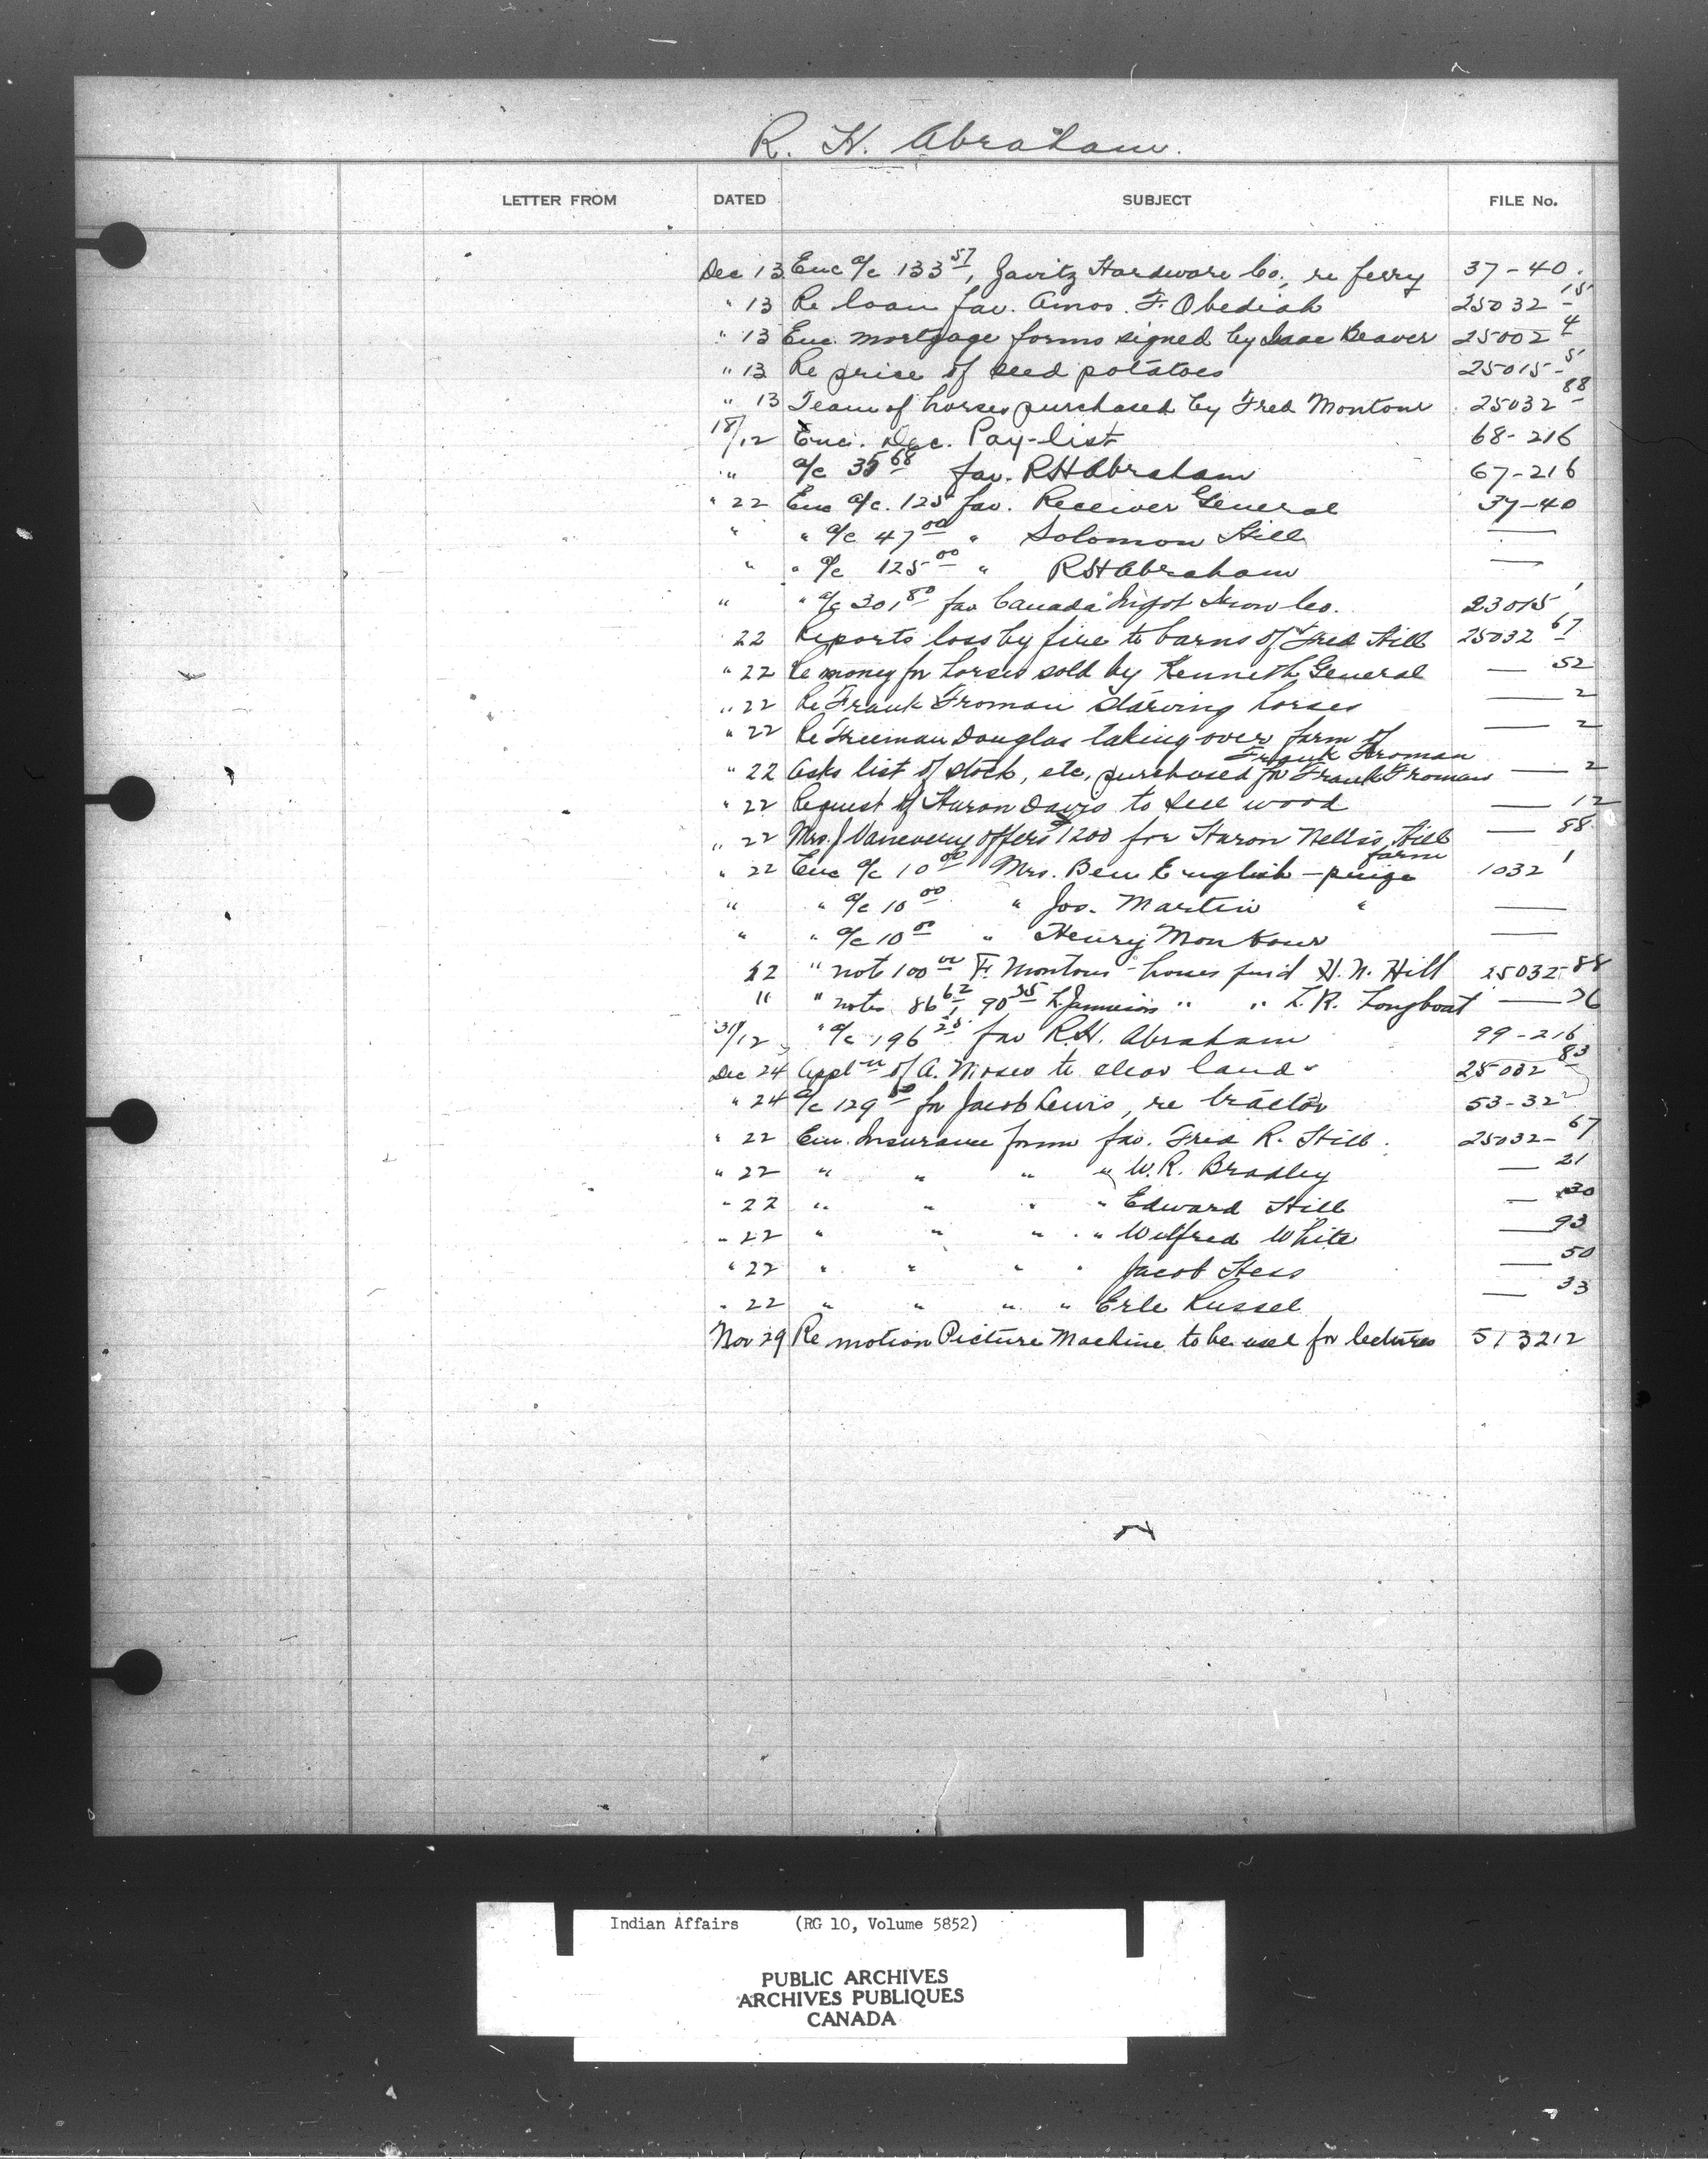 R. H. Abraham.
LETTER FROM DATED SUBJECT FILE No.
Dec 13 Enc a/c 133 57, Javitz Hardware Co., re ferry 37-40.
" 13 Re loan fav. Amos. F. Obediah 25032-15
" 13 Enc. mortgage forms signed by Isaac Beaver 25002 4
" 13 Re price of seed potatoes 25015-5
" 13 Team of horses purchased by Fred Montour 25032 88
18/12 Enc. Dec. Pay-list 68-216
" a/c 35 68 fav. RH Abraham 67-216
" 22 Enc a/c. 125 fav. Receiver General 37-40
" " a/c 47 00 " Solomon Hill —
" " a/c 125 00 " RH Abraham —
" " a/c 301 80 fav Canada Ingot Iron Co. 23015 1
22 Reports loss by fire to barns of Fred Hill 25032 67
" 22 Re money for horses sold by Kenneth General — 52
" 22 Re Frank Froman starving horses — 2
" 22 Re Freeman Douglas taking over farm of — 2
Frank Froman
" 22 Asks list of stock, etc, purchased for Frank Froman — 2
" 22 Request of Huron Davis to sell wood — 12
" 22 Mrs. J Vanevery offers $1200 for Huron Nellis, Hill — 88
farm
" 22 Enc a/c 10 00 Mrs. Ben English - 1032 1
" " a/c 10 00 " Jos. Martin " —
" " a/c 10 00 " Henry Montour —
22 " note 100 00 F. Montour - horses paid H. N. Hill 25032-88
" " notes 86 62, 90 35 L Jamieson " " L. R. Longboat — 26
31/12 " a/c 196 25 fav R.H. Abraham 99-216
Dec 24 Appl'n of A. Moses to clear land 25032 83
" 24 a/c 129 50 fav Jacob Lewis, re tractor 53-32
" 22 Enc. Insurance form fav. Fred R. Hill. 25032-67
" 22 " " " " W. R. Bradley — 21
" 22 " " " " Edward Hill — 30
" 22 " " " " Wilfred White — 93
" 22 " " " " Jacob Hess — 50
" 22 " " " " Erle Russel — 33
Nov 29 Re motion Picture Machine to be used for lectures 513212
Indian Affairs (RG 10, Volume 5852)
PUBLIC ARCHIVES
ARCHIVES PUBLIQUES
CANADA